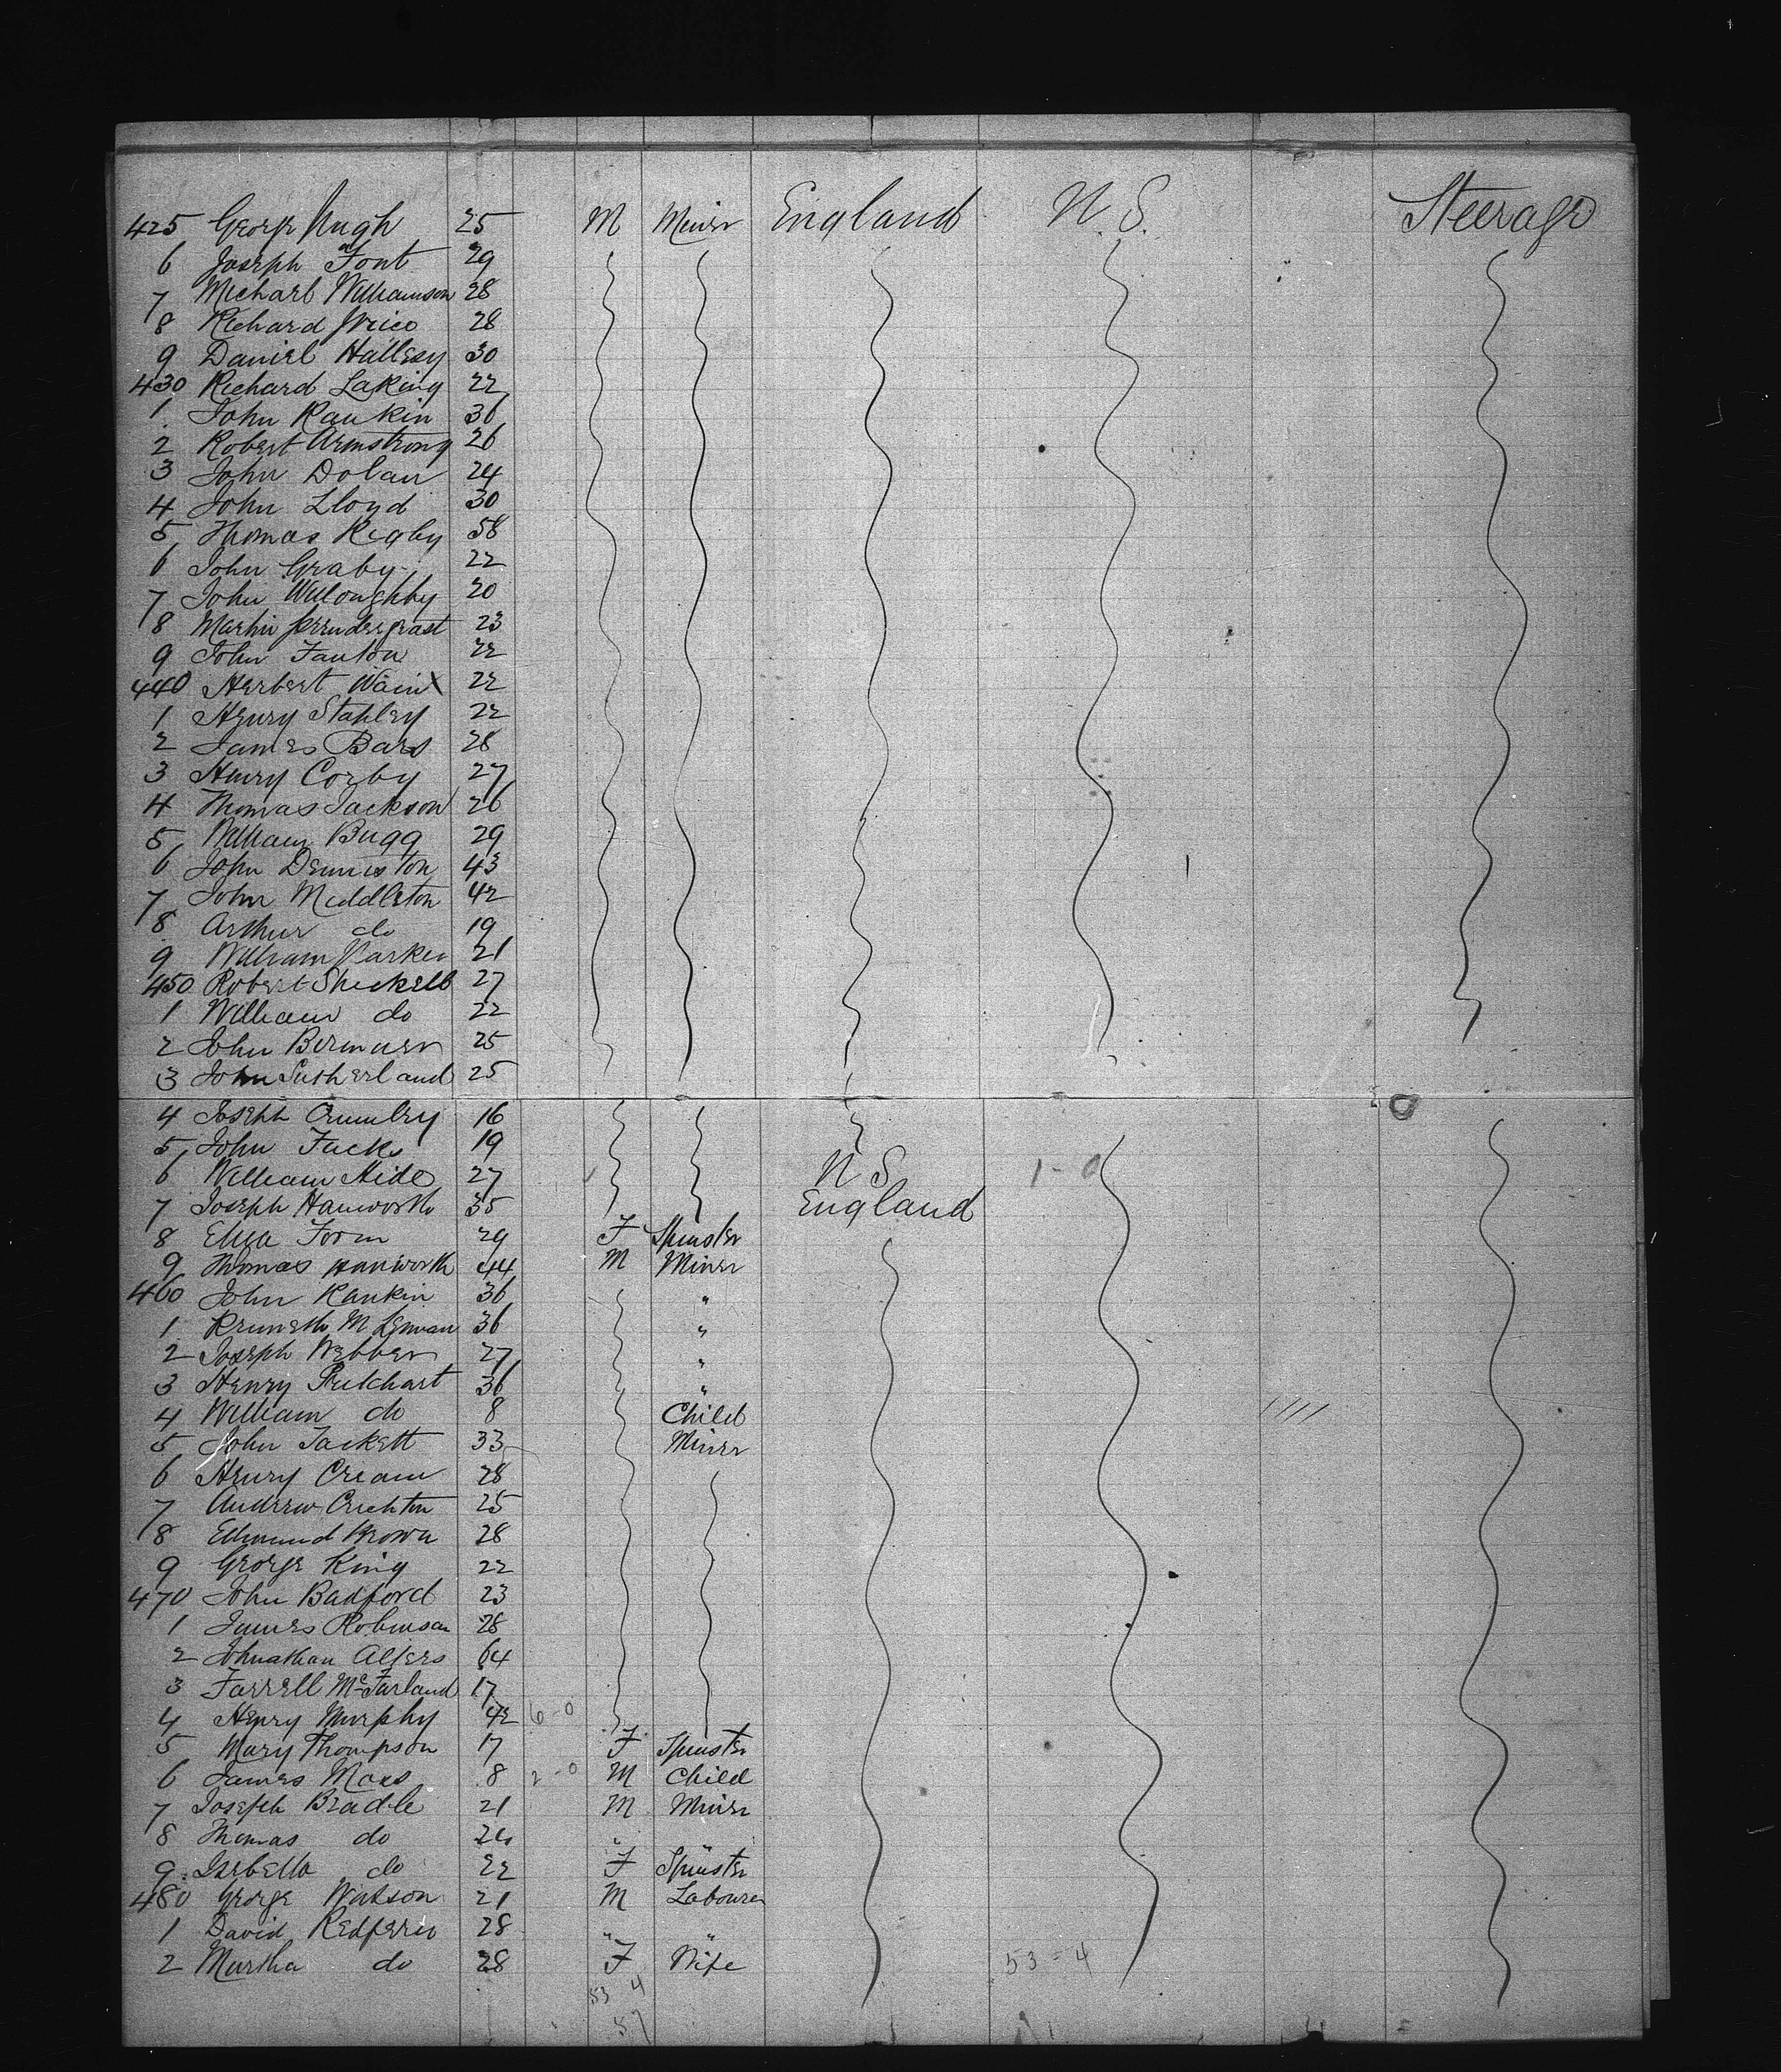 425 George Pugh 25 M Miner England N. S. Steerage
6 Joseph Font 29
7 Michael Williamson 28
8 Richard Price 28
9 Daniel Hallesy 30
430 Richard Laking 22
1 John Rankin 36
2 Robert Armstrong 26
3 John Dolan 24
4 John Lloyd 30
5 Thomas Rigby 58
6 John Graby 22
7 John Willoughby 20
8 Martin Prendergrast 23
9 John Fanton 22
440 Herbert Wain 22
1 Henry Stanley 22
2 James Bars 28
3 Henry Corby 27
4 Thomas Jackson 26
5 William Bugg 29
6 John Denniston 43
7 John Middleton 42
8 Arthur do 19
9 William Parker 21
450 Robert Sheckell 27
1 William do 22
2 John 25
3 John Sutherland 25
4 Joseph Crumley 16
5 John Jacks 19
6 William Hide 27 N S 1-0
7 Joseph Hanworth 35 England
8 Eliza Form 29 F Spinster
9 Thomas Hanworth 44 M Miner
460 John Rankin 36 "
1 Kenneth M Lennan 36 "
2 Joseph Webber 27 "
3 Henry Pritchart 36 "
4 William do 8 Child
5 John Jackett 33 Miner
6 Henry Cream 28
7 Andrew Crichton 25
8 Edmund Brown 28
9 George King 22
470 John Badford 23
1 James Robinson 28
2 Johnathan Algers 64
3 Farrell McFarland 17
4 Henry Murphy 42 6-0
5 Mary Thompson 17 F Spinster
6 James Moss 8 2-0 M Child
7 Joseph Bradle 21 M Miner
8 Thomas do 24 "
9 Isebella do 22 F Spinster
480 George Watson 21 M Labourer
1 David Redferrn 28 " "
2 Martha do 28 F Wife 53-4
53 4
57